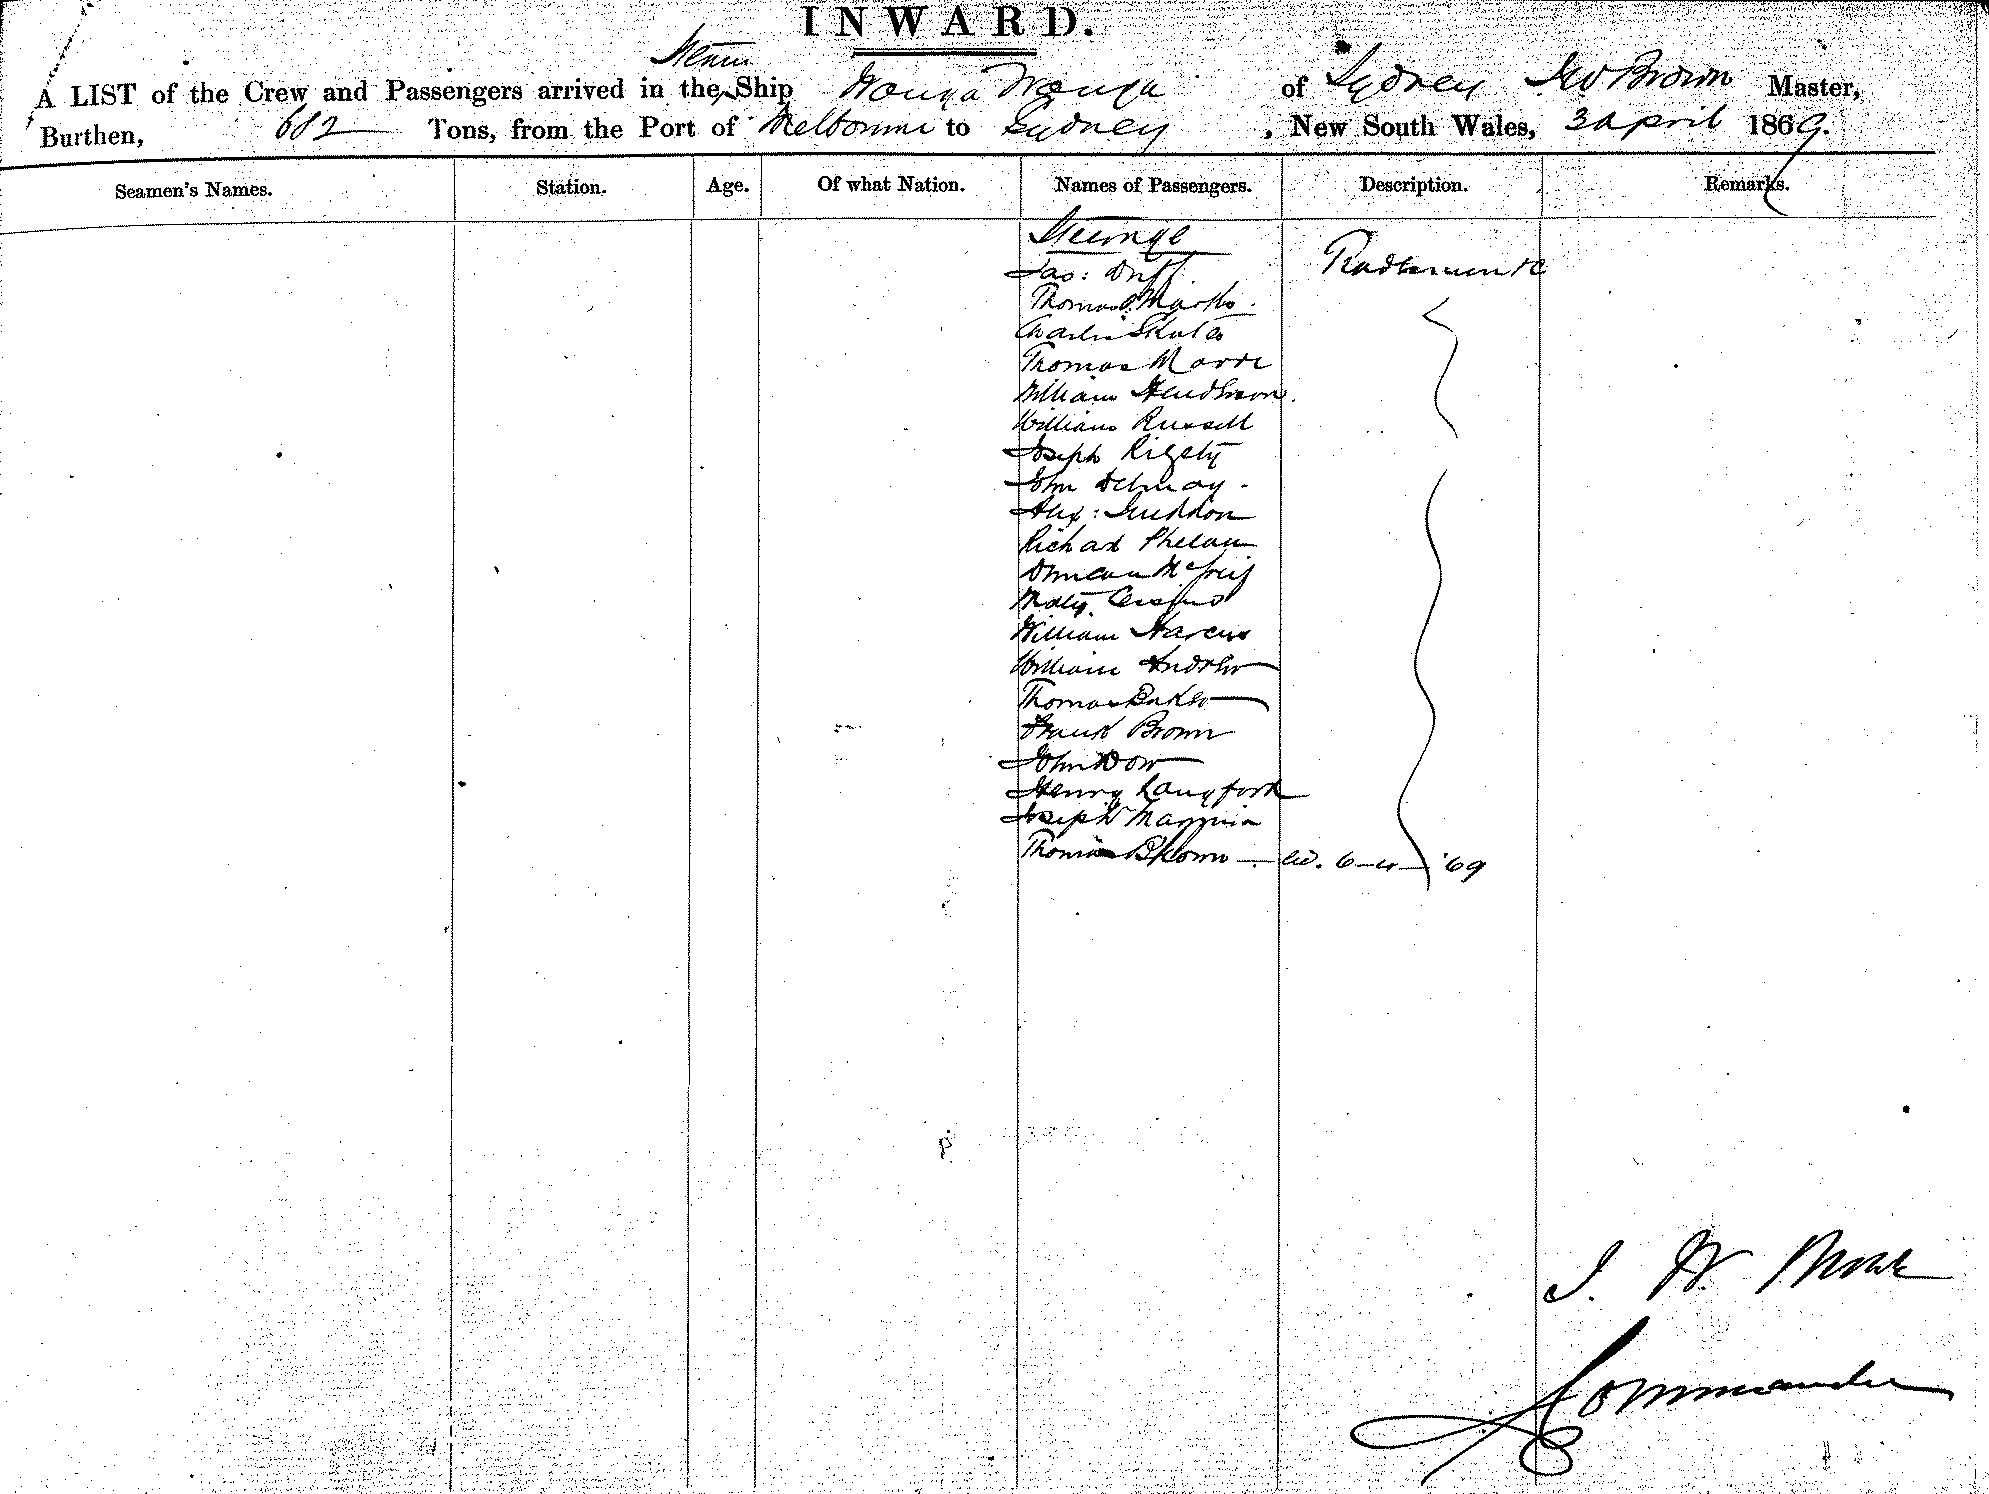 INWARD.
Steam
A LIST of the Crew and Passengers arrived in the Ship Wonga Wonga of Sydney Geo Brown Master,
Burthen, 682 Tons, from the Port of Melbourne to Sydney, New South Wales, 3 April 1869.
Seamen's Names. Station. Age. Of what Nation. Names of Passengers. Description. Remarks.
Steerage
Jas: Duff
Thomas Marks.
Charles
Thomas Moore
William Henderson.
William Russell
Joseph
John Delmay.
Alex:
Richad Phelan
Duncan
William Harcus
William Andrew
Thomas Baker
Frank Brown
John Dow
Henry Langford
Joseph
Thomas Brown 6-4-'69
J. W.
Commander